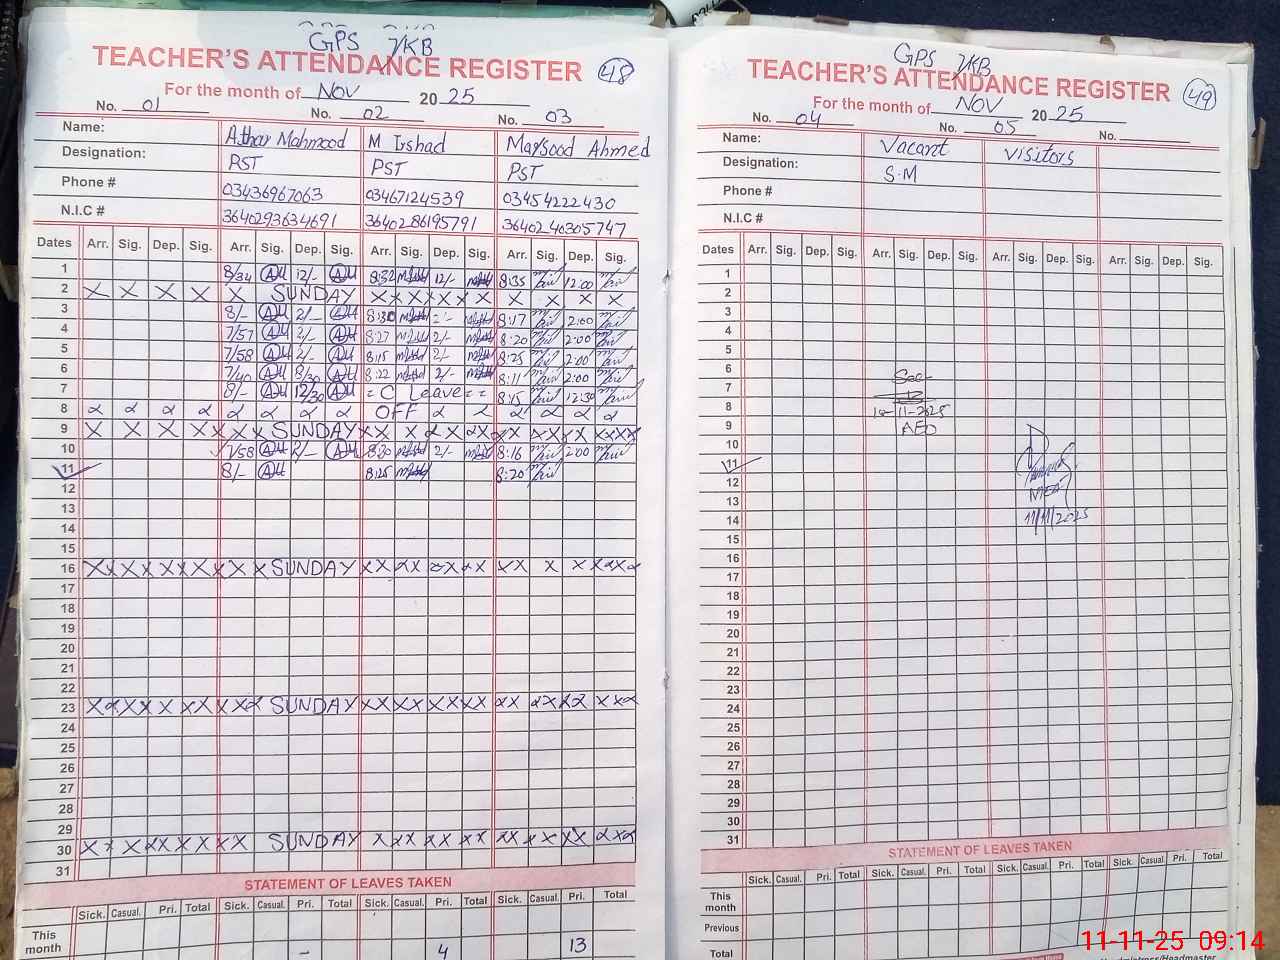 GPS 7KB
TEACHER'S ATTENDANCE REGISTER 48
For the month of NOV 2025
No. 01 No. 02 No. 03
Name: Athar Mahmood M Irshad Maqsood Ahmed
Designation: PST PST PST
Phone # 03436967063 03467124539 03454222430
N.I.C # 3640293634691 3640286195791 3640240305747
Dates Arr. Sig. Dep. Sig. Arr. Sig. Dep. Sig. Arr. Sig. Dep. Sig. Arr. Sig. Dep. Sig.
1 8/34 12/- 8:32 12/- 8:35 12:00
2 X X X X X SUNDAY X X X X X X X X X X X
3 8/- 2/- 8:30 8:17 2:00
4 7/57 2/- 8:27 2/- 8:20 2:00
5 7/58 2/- 8:15 2/- 8:25 2:00
6 7/40 8:22 2/- 8:11 2:00
7 8/- 12/30 C Leave 8:15 12:30
8 OFF
9 SUNDAY
10 7/58 2/- 8:30 2/- 8:16 2:00
11 8/- 8:25 8:20
12
13
14
15
16 SUNDAY
17
18
19
20
21
22
23 SUNDAY
24
25
26
27
28
29
30 SUNDAY
31
STATEMENT OF LEAVES TAKEN
Sick. Casual. Pri. Total Sick. Casual. Pri. Total Sick. Casual. Pri. Total Sick. Casual. Pri. Total
This month - 4 13
GPS 7KB
TEACHER'S ATTENDANCE REGISTER 49
For the month of NOV 2025
No. 04 No. 05 No.
Name: Vacant visitors
Designation: S.M
Phone #
N.I.C #
Dates Arr. Sig. Dep. Sig. Arr. Sig. Dep. Sig. Arr. Sig. Dep. Sig. Arr. Sig. Dep. Sig.
1
2
3
4
5
6
7 See
8 11-2025
9 AEO
10
11
12
13 MEA
14 11/11/2025
15
16
17
18
19
20
21
22
23
24
25
26
27
28
29
30
31
STATEMENT OF LEAVES TAKEN
Sick. Casual. Pri. Total Sick. Casual. Pri. Total Sick. Casual. Pri. Total Sick. Casual. Pri. Total
This month
Previous
Total
Headmistress/Headmaster
11-11-25 09:14